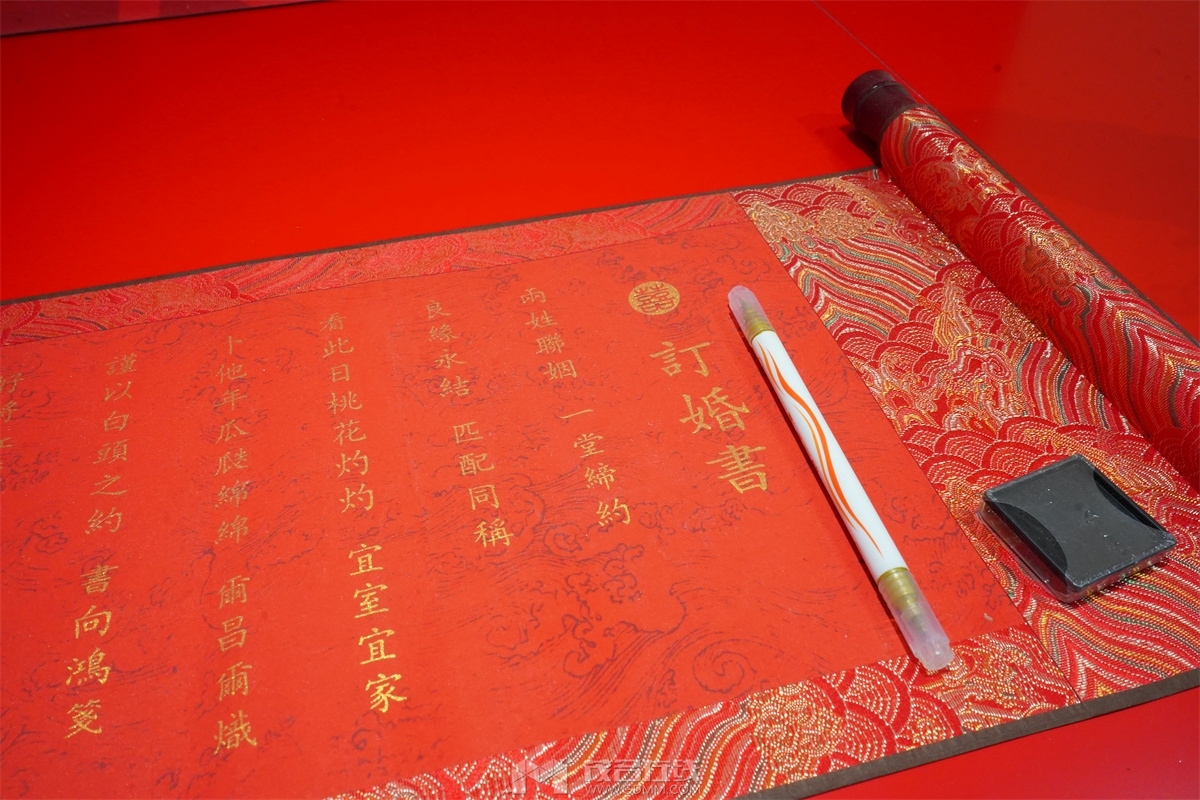 囍
訂婚書
兩姓聯姻 一堂締約
良緣永結 匹配同稱
看此日桃花灼灼 宜室宜家
卜他年瓜瓞綿綿 爾昌爾熾
謹以白頭之約 書向鴻箋
茂名在线
WWW.GDMM.COM